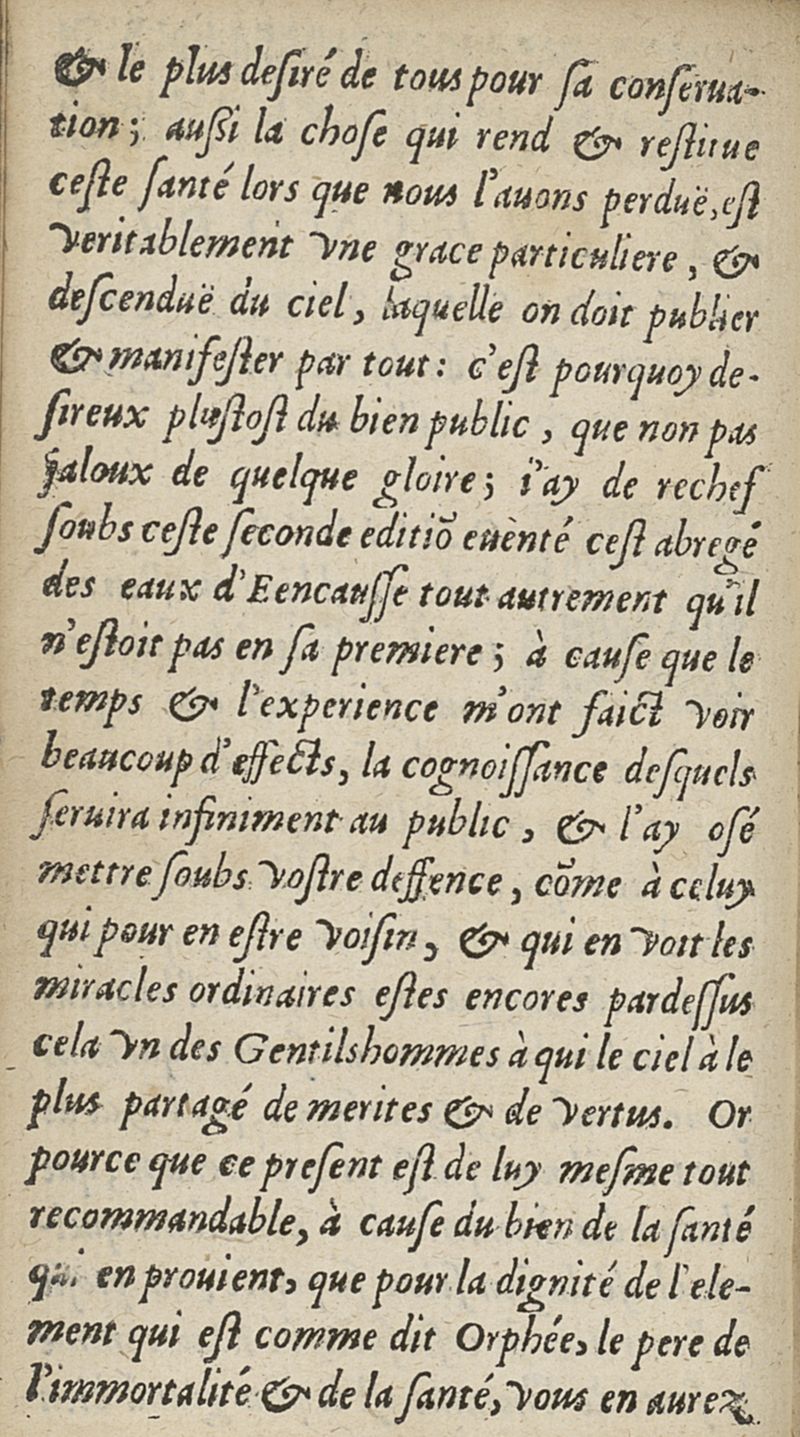 & le plus desiré de tous pour sa conserua-
tion; aussi la chose qui rend & restitue
ceste santé lors que nous l'auons perduë, est
veritablement vne grace particuliere, &
descenduë du ciel, laquelle on doit publier
& manifester par tout: c'est pourquoy de-
sireux plustost du bien public, que non pas
jaloux de quelque gloire; i'ay de rechef
soubs ceste seconde editiõ euènté cest abregé
des eaux d'Eencausse tout autrement qu'il
n'estoit pas en sa premiere; à cause que le
temps & l'experience m'ont faict voir
beaucoup d'effects, la cognoissance desquels
seruira infiniment au public, & l'ay osé
mettre soubs vostre deffence, cõme à celuy
qui pour en estre voisin, & qui en voit les
miracles ordinaires estes encores pardessus
cela vn des Gentilshommes à qui le ciel à le
plus partagé de merites & de vertus. Or
pource que ce present est de luy mesme tout
recommandable, à cause du bien de la santé
qui en prouient, que pour la dignité de l'ele-
ment qui est comme dit Orphée, le pere de
l'immortalité & de la santé, vous en aurez